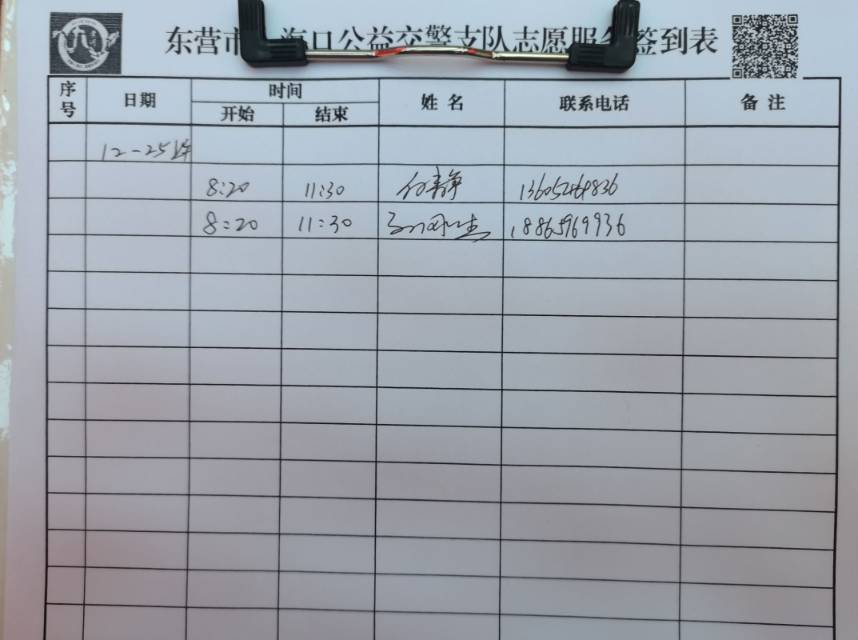 东营市 海口公益交警支队志愿服务签到表
序号 日期 时间 姓名 联系电话 备注
开始 结束
12-25
8:20 11:30 静 13605464836
8:20 11:30 18865969936